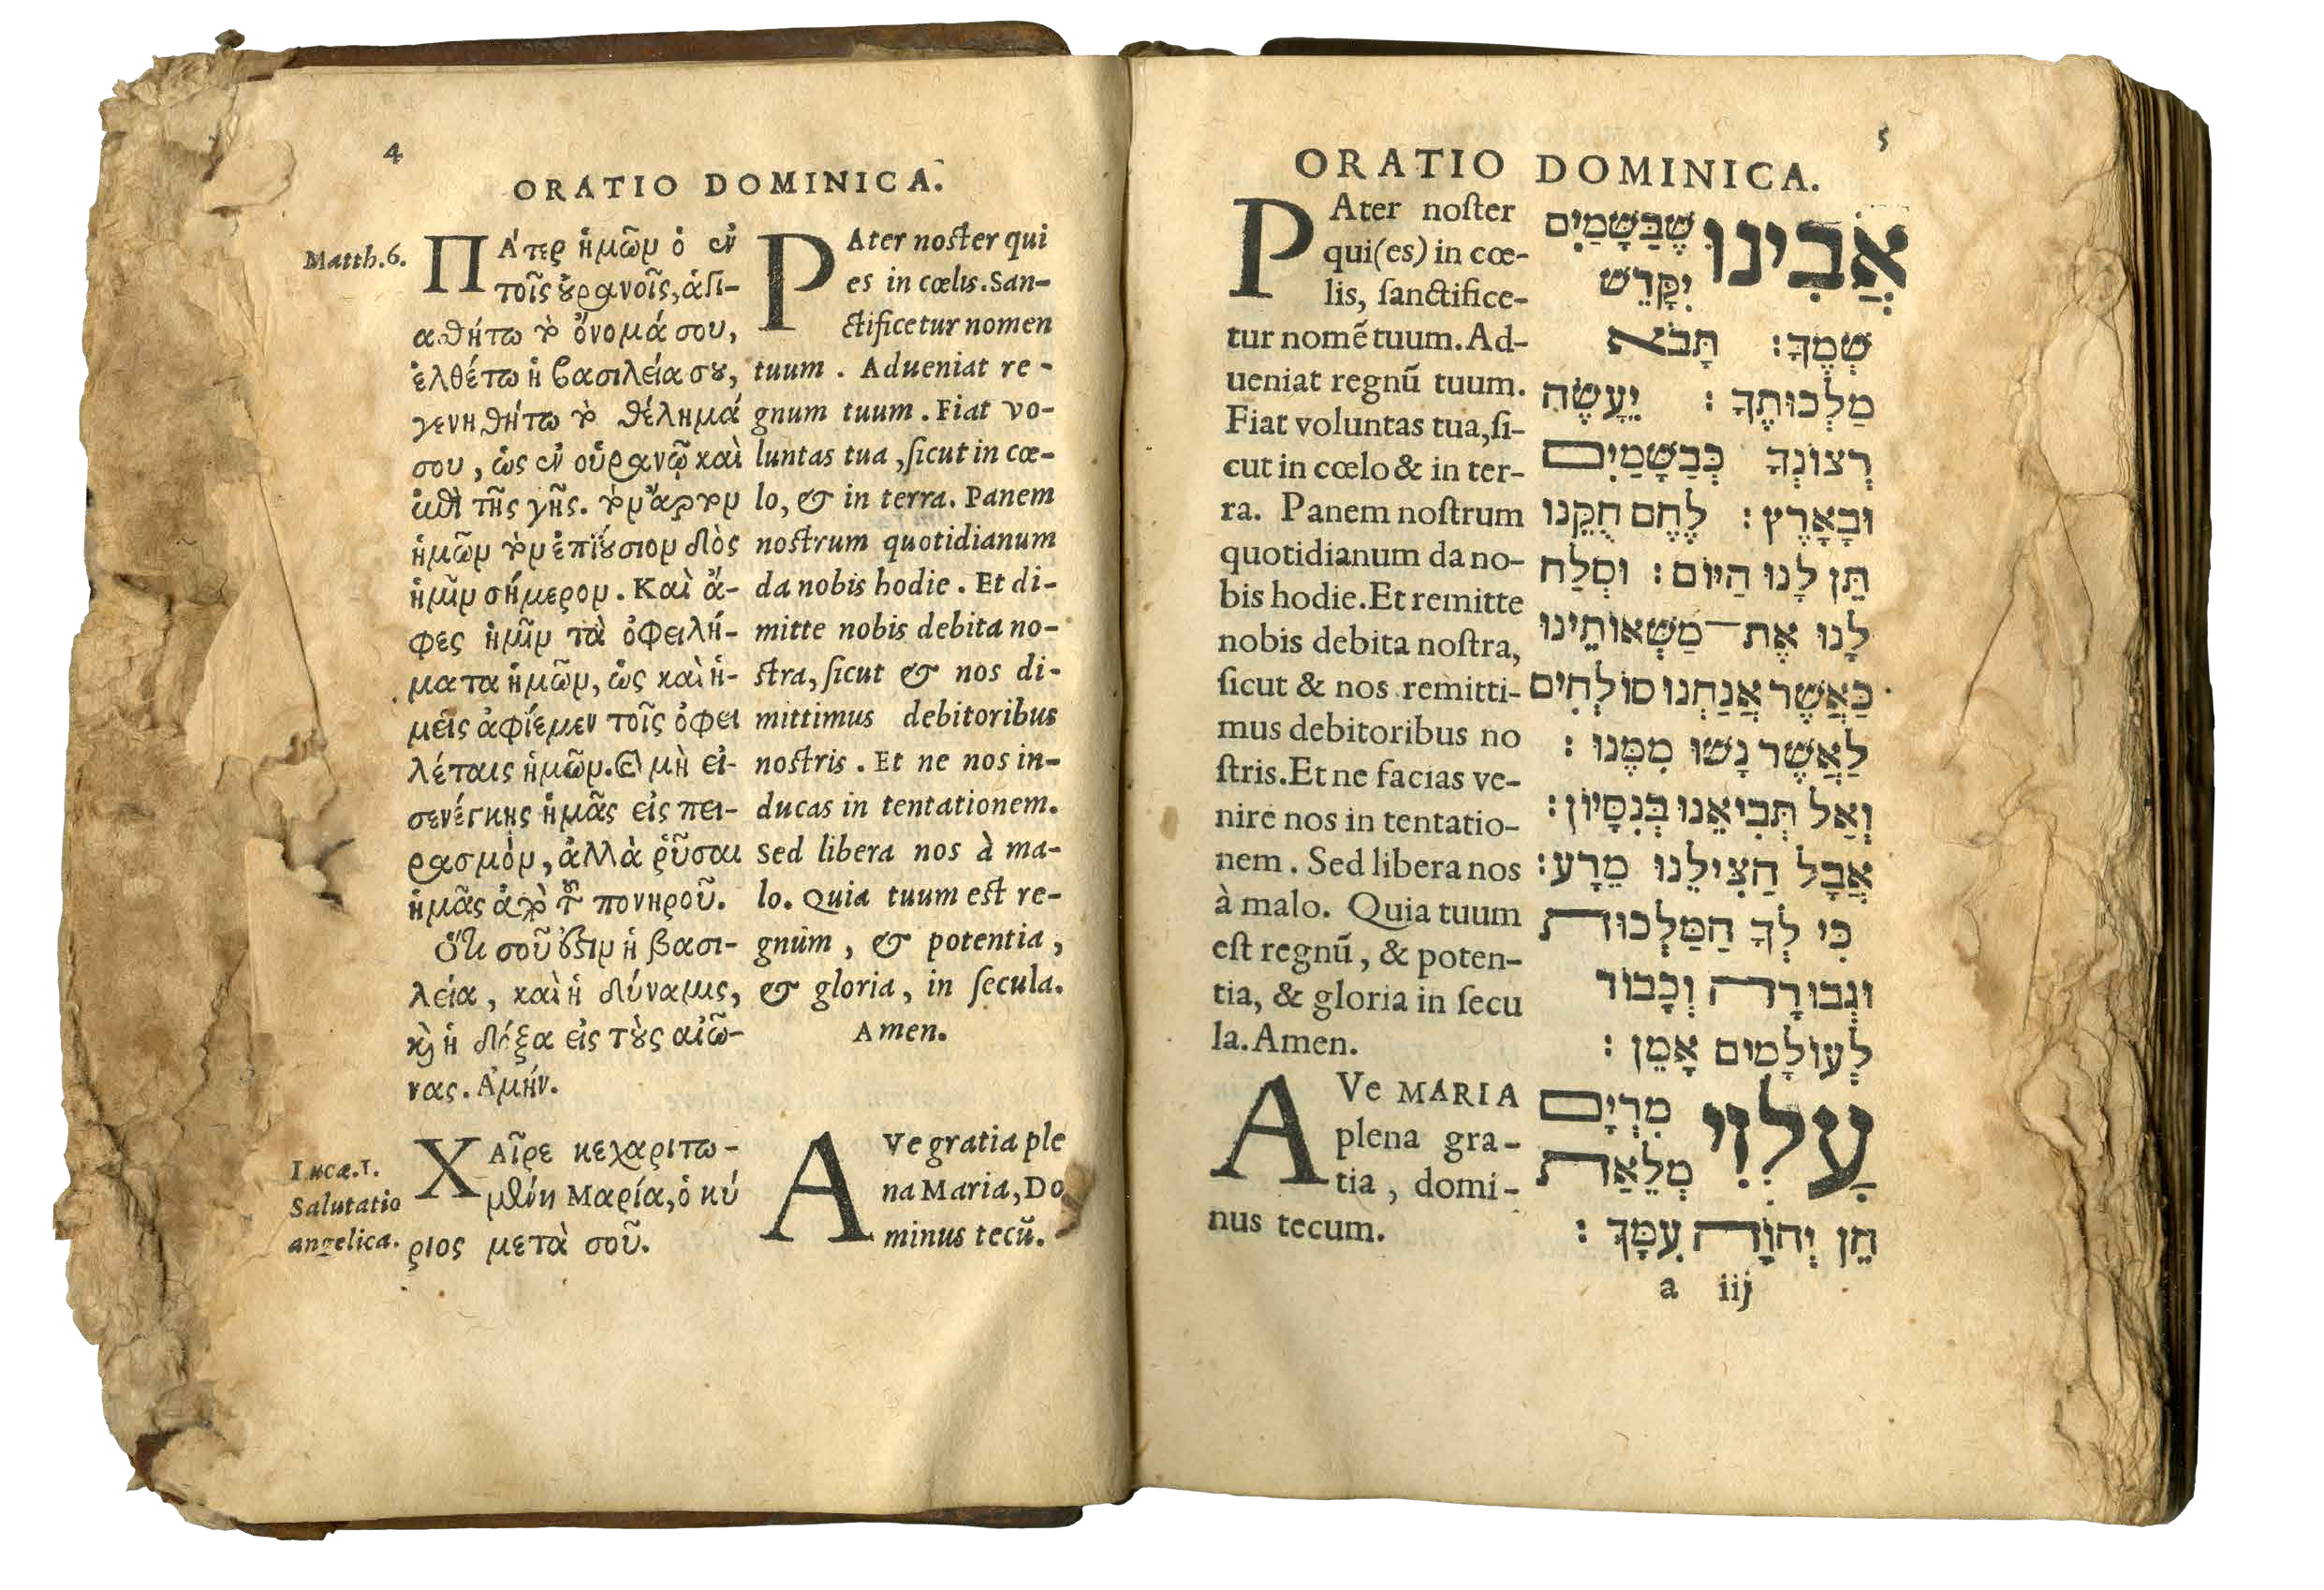 4
ORATIO DOMINICA.
Matth.6.
ΠΆτερ ἡμῶν ὁ ἐν
τοῖς οὐρανοῖς, ἁγι-
ασθήτω τὸ ὄνομά σου,
ἐλθέτω ἡ βασιλεία σου,
γενηθήτω τὸ θέλημά
σου, ὡς ἐν οὐρανῷ καὶ
ἐπὶ τῆς γῆς. τὸν ἄρτον
ἡμῶν τὸν ἐπιούσιον δὸς
ἡμῖν σήμερον. Καὶ ἄ-
φες ἡμῖν τὰ ὀφειλή-
ματα ἡμῶν, ὡς καὶ ἡ-
μεῖς ἀφίεμεν τοῖς ὀφει
λέταις ἡμῶν. Καὶ μὴ εἰ-
σενέγκῃς ἡμᾶς εἰς πει-
ρασμὸν, ἀλλὰ ῥῦσαι
ἡμᾶς ἀπὸ τοῦ πονηροῦ.
Ὅτι σοῦ ἐστιν ἡ βασι-
λεία, καὶ ἡ δύναμις,
καὶ ἡ δόξα εἰς τοὺς αἰῶ-
νας. Ἀμήν.
PAter noster qui
es in cœlis. San-
ctificetur nomen
tuum. Adueniat re-
gnum tuum. Fiat vo-
luntas tua, ſicut in cœ-
lo, & in terra. Panem
nostrum quotidianum
da nobis hodie. Et di-
mitte nobis debita no-
stra, ſicut & nos di-
mittimus debitoribus
nostris. Et ne nos in-
ducas in tentationem.
sed libera nos à ma-
lo. Quia tuum est re-
gnum, & potentia,
& gloria, in ſecula.
Amen.
Lucæ.1.
Salutatio
angelica.
ΧΑῖρε κεχαριτω-
μένη Μαρία, ὁ κύ
ριος μετὰ σοῦ.
AVe gratia ple
na Maria, Do
minus tecũ.
5
ORATIO DOMINICA.
PAter noſter
qui (es) in cœ-
lis, ſanctifice-
tur nomẽ tuum. Ad-
ueniat regnũ tuum.
Fiat voluntas tua, ſi-
cut in cœlo & in ter-
ra. Panem noſtrum
quotidianum da no-
bis hodie. Et remitte
nobis debita noſtra,
ſicut & nos remitti-
mus debitoribus no
ſtris. Et ne facias ve-
nire nos in tentatio-
nem. Sed libera nos
à malo. Quia tuum
eſt regnũ, & poten-
tia, & gloria in ſecu
la. Amen.
אֲבִינוּ שֶׁבַּשָּׁמַיִם
יִקָּדֵשׁ
שְׁמֶךָ׃ תָּבֹא
מַלְכוּתֶךָ׃ יֵעָשֶׂה
רְצוֹנְךָ כְּבַשָּׁמַיִם
וּבָאָרֶץ׃ לֶחֶם חֻקֵּנוּ
תֵּן לָנוּ הַיּוֹם׃ וּסְלַח
לָנוּ אֶת־מַשְּׁאוֹתֵינוּ
כַּאֲשֶׁר אֲנַחְנוּ סוֹלְחִים
לַאֲשֶׁר נָשׁוּ מִמֶּנּוּ׃
וְאַל תְּבִיאֵנוּ בְּנִסָּיוֹן׃
אֲבָל הַצִּילֵנוּ מֵרָע׃
כִּי לְךָ הַמַּלְכוּת
וּגְבוּרָה וְכָבוֹד
לְעוֹלָמִים אָמֵן׃
AVe MARIA
plena gra-
tia, domi-
nus tecum.
עָלְזִי מִרְיָם
מְלֵאַת
חֵן יְהוָֹה עִמָּךְ׃
a iij